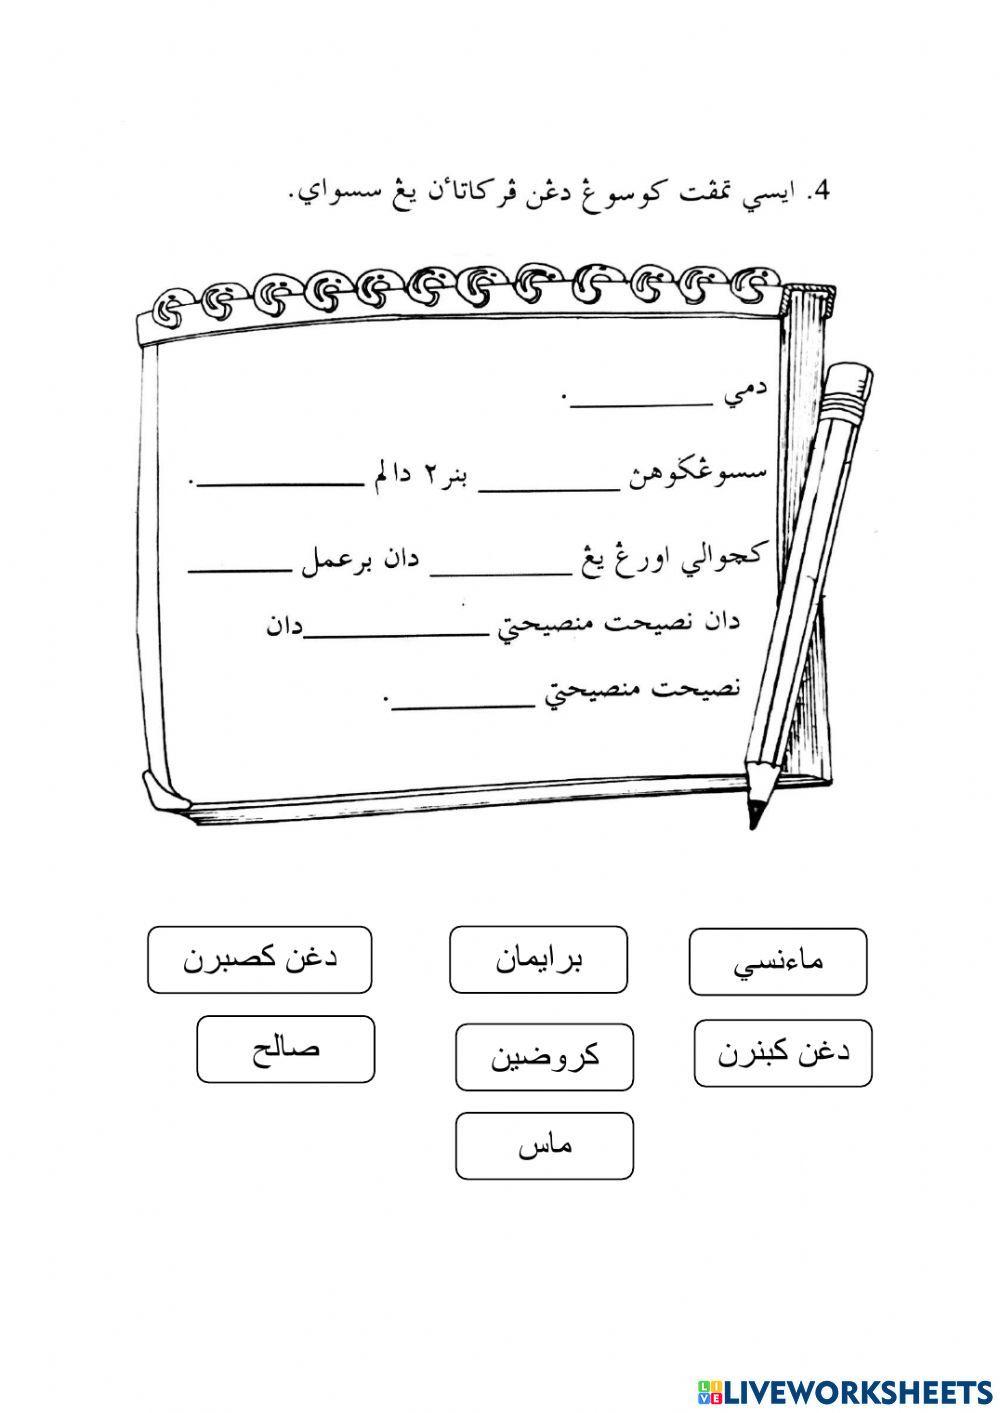 4. ايسي تمڤت كوسوڠ دڠن ڤركاتاءن يڠ سسواي.
دمي ________.
سسوڠݢوهڽ ________ بنر٢ دالم ________.
كچوالي اورڠ يڠ ________ دان برعمل ________
دان نصيحت منصيحتي ________دان
نصيحت منصيحتي ________.
ماءنسي
برايمان
دغن كصبرن
دغن كبنرن
كروضين
صالح
ماس
LIVEWORKSHEETS